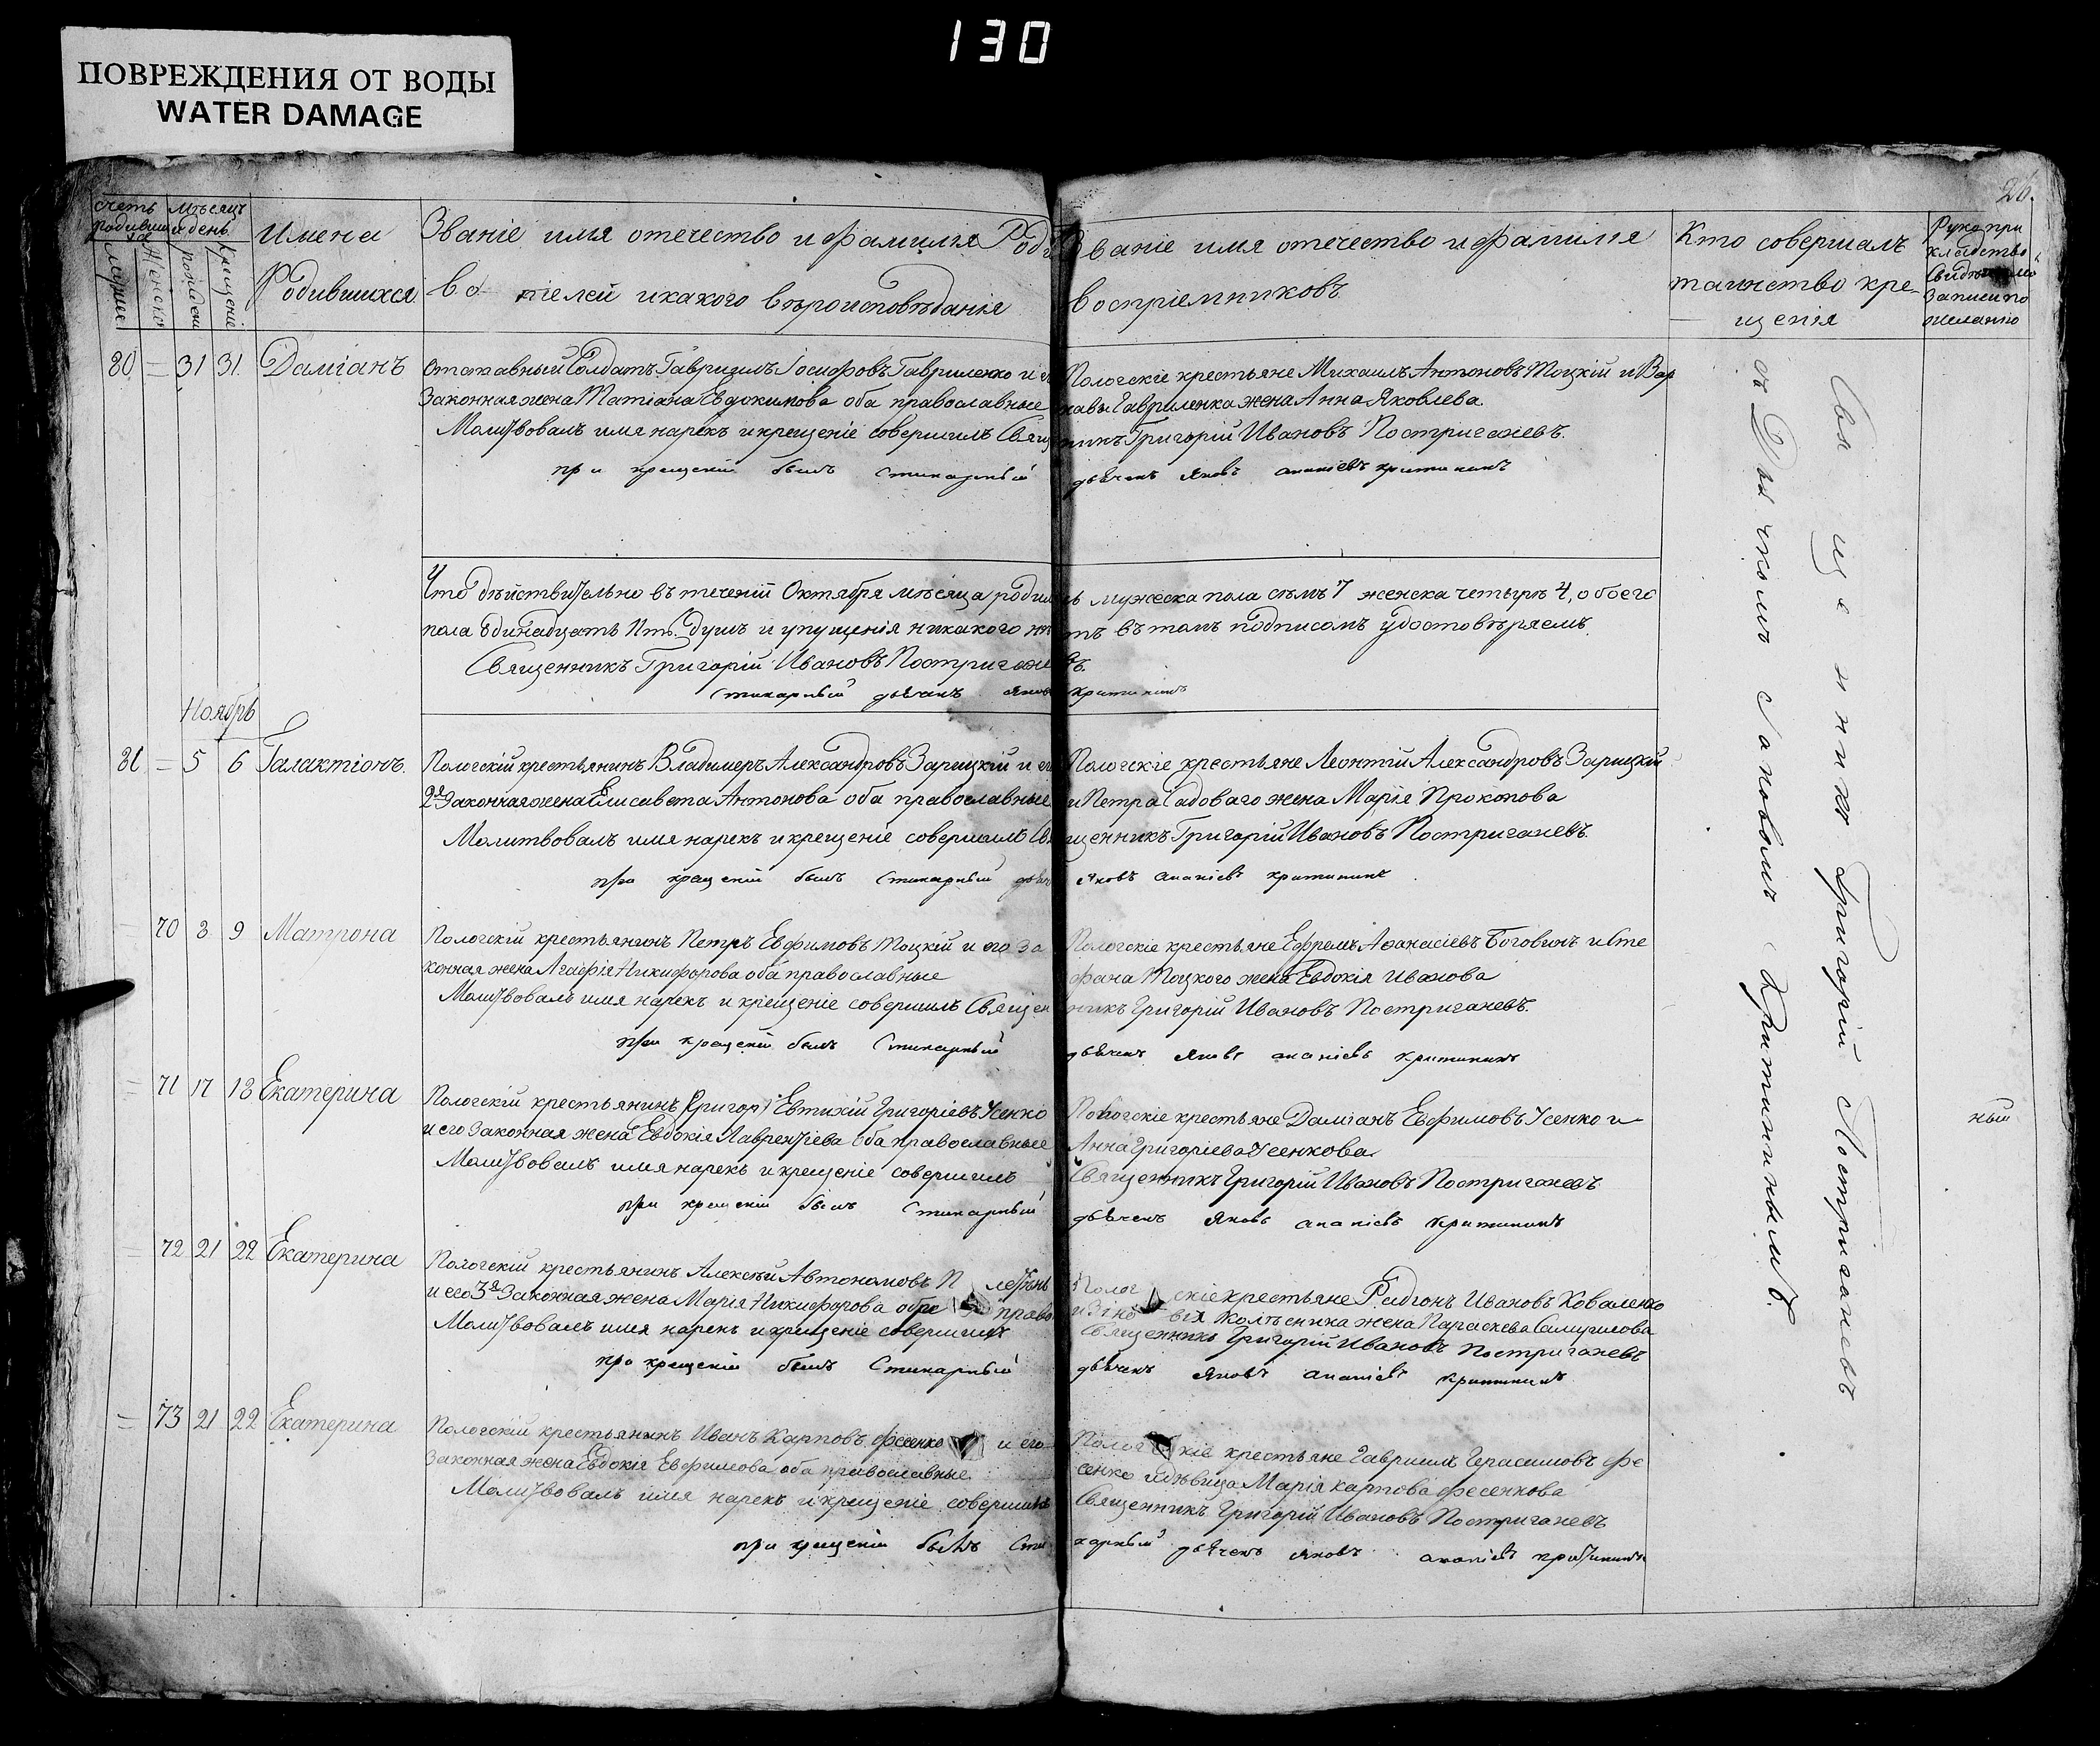 130
ПОВРЕЖДЕНИЯ ОТ ВОДЫ
WATER DAMAGE
26.
Счетъ родившихся
Мужес.
Женско
Мѣсяцъ и день
рожден
крещеніе
Имена
Родившихся
Званіе имя отечество и фамилія Роди
телей и какого вѣроисповѣданія
Званіе имя отечество и фамилія
воспріемниковъ
Кто совершалъ
таинство кре-
щенія
Рукопри
кладство
Свидѣтелей
Записи по
желанію
80 = 31 31. Даміанъ
Отставный Солдатъ Гавриилъ Іосифовъ Гавриленко и его
Законная жена Татіана Евдокимова оба православные
Молитвовалъ имя нарекъ и крещеніе совершилъ Свящ
при крещеніи былъ Стихарный
Пологскіе крестьяне Михаилъ Антоновъ Тоцкій и Вар
навы Гавриленка жена Анна Яковлева.
никъ Григорій Ивановъ Постригачевъ.
дьячекъ Яковъ Ананіевъ Критининъ
Что дѣйствительно въ теченіи Октября мѣсяца родилось мужеска пола семъ 7 женска четыре 4, обоего
пола одинадцать душъ и упущенія никакого нѣтъ въ томъ подписомъ удостовѣряемъ
Священникъ Григорій Ивановъ Постригачевъ.
Стихарный дьячекъ Яковъ Критининъ
Ноябрь
81 = 5 6 Галактіонъ.
Пологскій крестьянинъ Владимеръ Александровъ Зарицкій и его
2я Законная жена Елисавета Антонова оба православные
Молитвовалъ имя нарекъ и крещеніе совершилъ Свя
при крещеніи былъ Стихарный дьяч
Пологскіе крестьяне Леонтій Александровъ Зарицкій
и Петра Садоваго жена Марія Прокопова
щенникъ Григорій Ивановъ Постригачевъ
Яковъ Ананіевъ Критининъ
= 70 8 9 Матрона
Пологскій крестьянинъ Петръ Евфимовъ Тоцкій и его за
конная жена Агафія Никифорова оба православные
Молитвовалъ имя нарекъ и крещеніе совершилъ Священ
при крещеніи былъ Стихарный
Пологскіе крестьяне Ефремъ Аѳанасіевъ Боговинъ и Сте
фана Тоцкого жена Евдокія Иванова
никъ Григорій Ивановъ Постригачевъ.
дьячекъ Яковъ Ананіевъ Критининъ
= 71 17 18 Екатерина
Пологскій крестьянинъ (Григор) Евтихій Григоріевъ Усенко
и его Законная жена Евдокія Лаврентіева оба православные
Молитвовалъ имя нарекъ и крещеніе совершилъ
при крещеніи былъ Стихарный
Пологскіе крестьяне Даміанъ Евфимовъ Усенко и
Анна Григоріева Усенкова
Священникъ Григорій Ивановъ Постригачевъ
дьячекъ Яковъ Ананіевъ Критининъ
= 72 21 22 Екатерина
Пологскій крестьянинъ Алексѣй Автономовъ
и его 3я Законная жена Марія Никифорова обое право
Молитвовалъ имя нарекъ и крещеніе совершилъ
при крещеніи былъ Стихарный
Полог скіе крестьяне Родіонъ Ивановъ Коваленко
и Зіно вія Колѣсника жена Параскева Самуилова
Священникъ Григорій Ивановъ Постригачевъ
дьячекъ Яковъ Ананіевъ Критининъ
= 73 21 22 Екатерина
Пологскій крестьянинъ Иванъ Карповъ Фесенко и его
Законная жена Евдокія Евфимова оба православные
Молитвовалъ имя нарекъ и крещеніе совершилъ
при крещеніи былъ Сти
Полог скіе крестьяне Гавриилъ Герасимовъ Фе
сенко и дѣвица Марія Карпова Фесенкова
Священникъ Григорій Ивановъ Постригачевъ
харный дьячекъ Яковъ Ананіевъ Критининъ
Священникъ Григорій Постригачевъ
съ Дьячкомъ Яковымъ Критининымъ.
ный